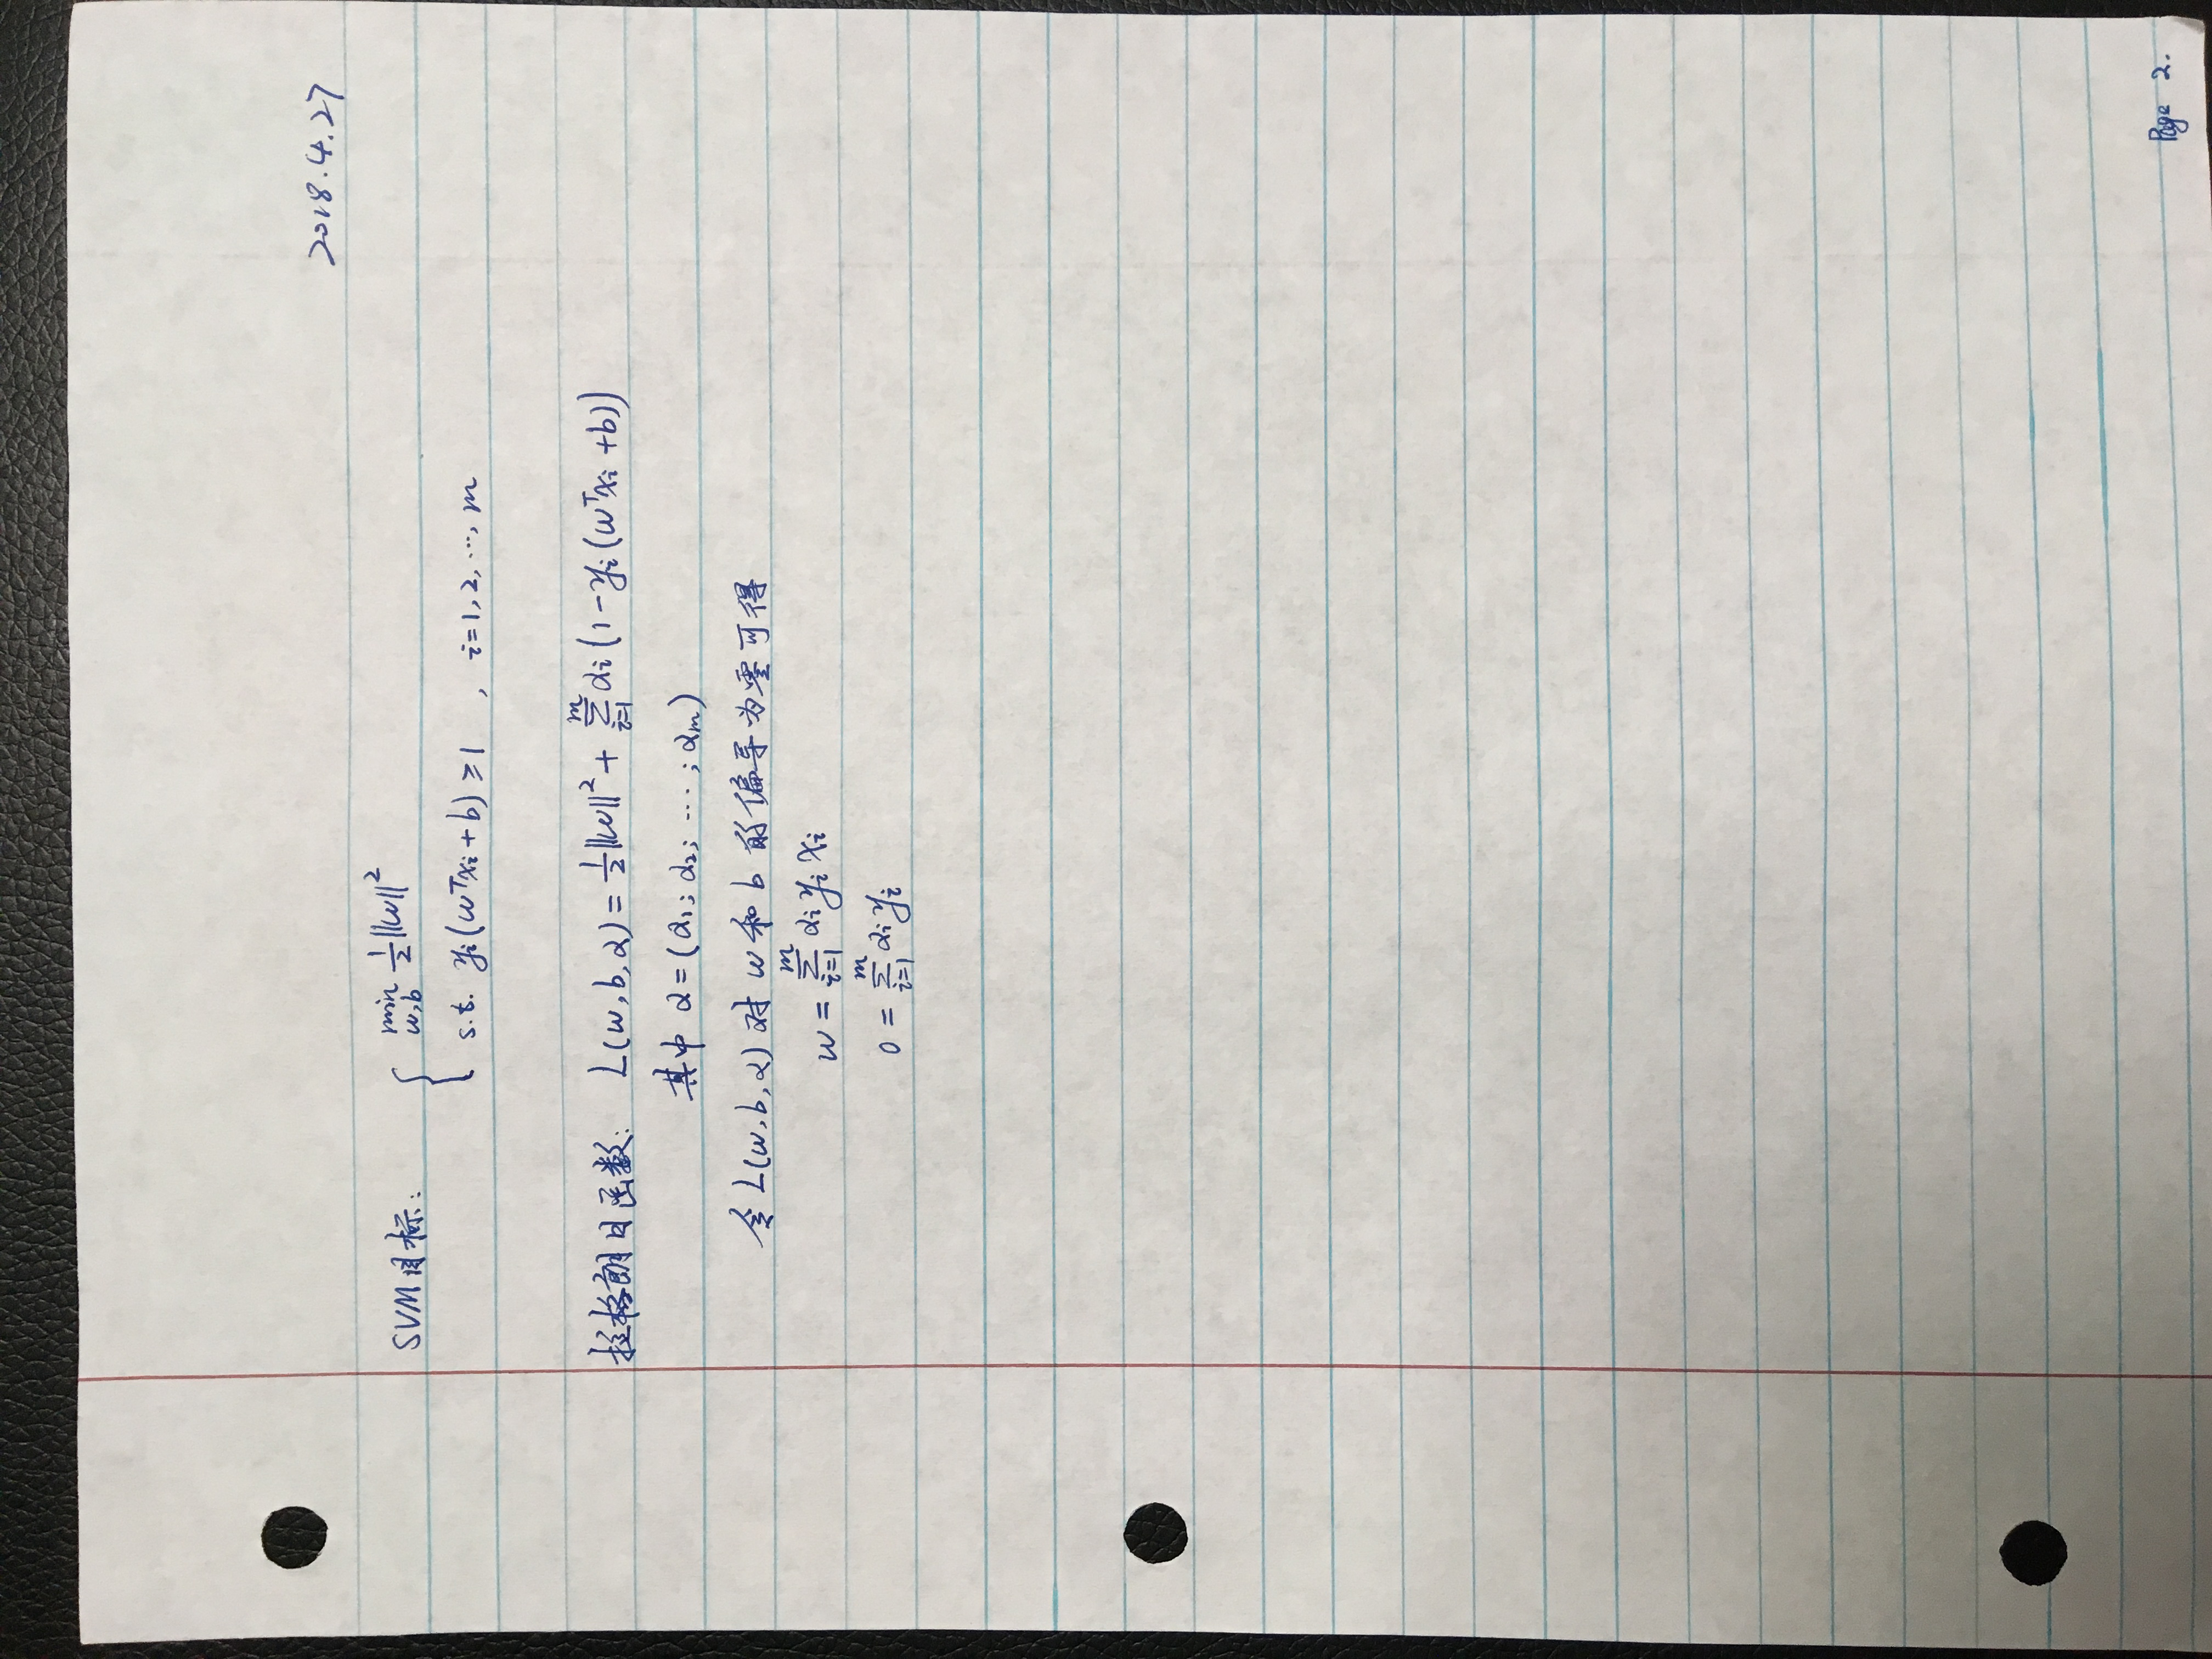 2018.4.27
SVM目标: { min_{w,b} 1/2 ||w||^2
s.t. y_i(w^T x_i + b) ≥ 1 , i=1,2,…,m
拉格朗日函数: L(w,b,α) = 1/2 ||w||^2 + Σ_{i=1}^{m} α_i (1 - y_i(w^T x_i + b))
其中 α = (α_1; α_2; …; α_m)
令 L(w,b,α) 对 w 和 b 的偏导为零可得
w = Σ_{i=1}^{m} α_i y_i x_i
0 = Σ_{i=1}^{m} α_i y_i
Page 2.